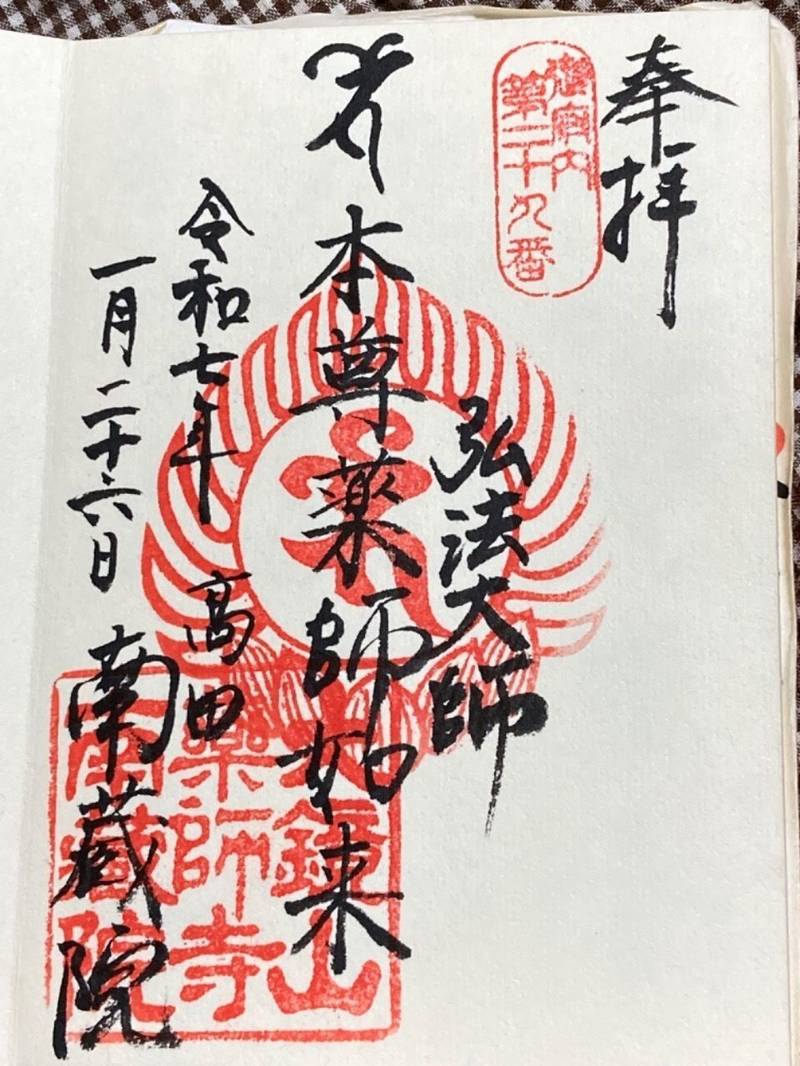 奉拝
御府内
第二十九番
弘法大師
本尊薬師如来
令和七年
一月二十六日
高田
南蔵院
大鏡山
薬師寺
南蔵院